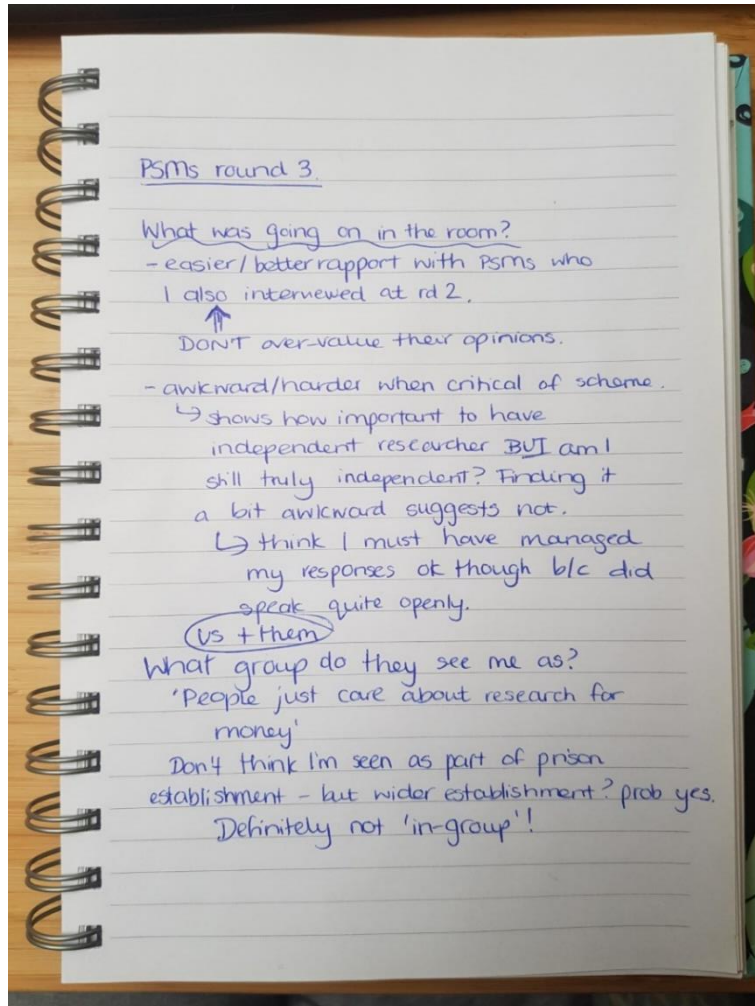 PSMs round 3.
What was going on in the room?
- easier/better rapport with PSMs who
I also interviewed at rd 2.
DON'T over-value their opinions.
- awkward/harder when critical of scheme.
↳ shows how important to have
independent researcher BUT am I
still truly independent? Finding it
a bit awkward suggests not.
↳ think I must have managed
my responses ok though b/c did
speak quite openly.
us + them
What group do they see me as?
'People just care about research for
money'
Don't think I'm seen as part of prison
establishment - but wider establishment? prob yes.
Definitely not 'in-group'!